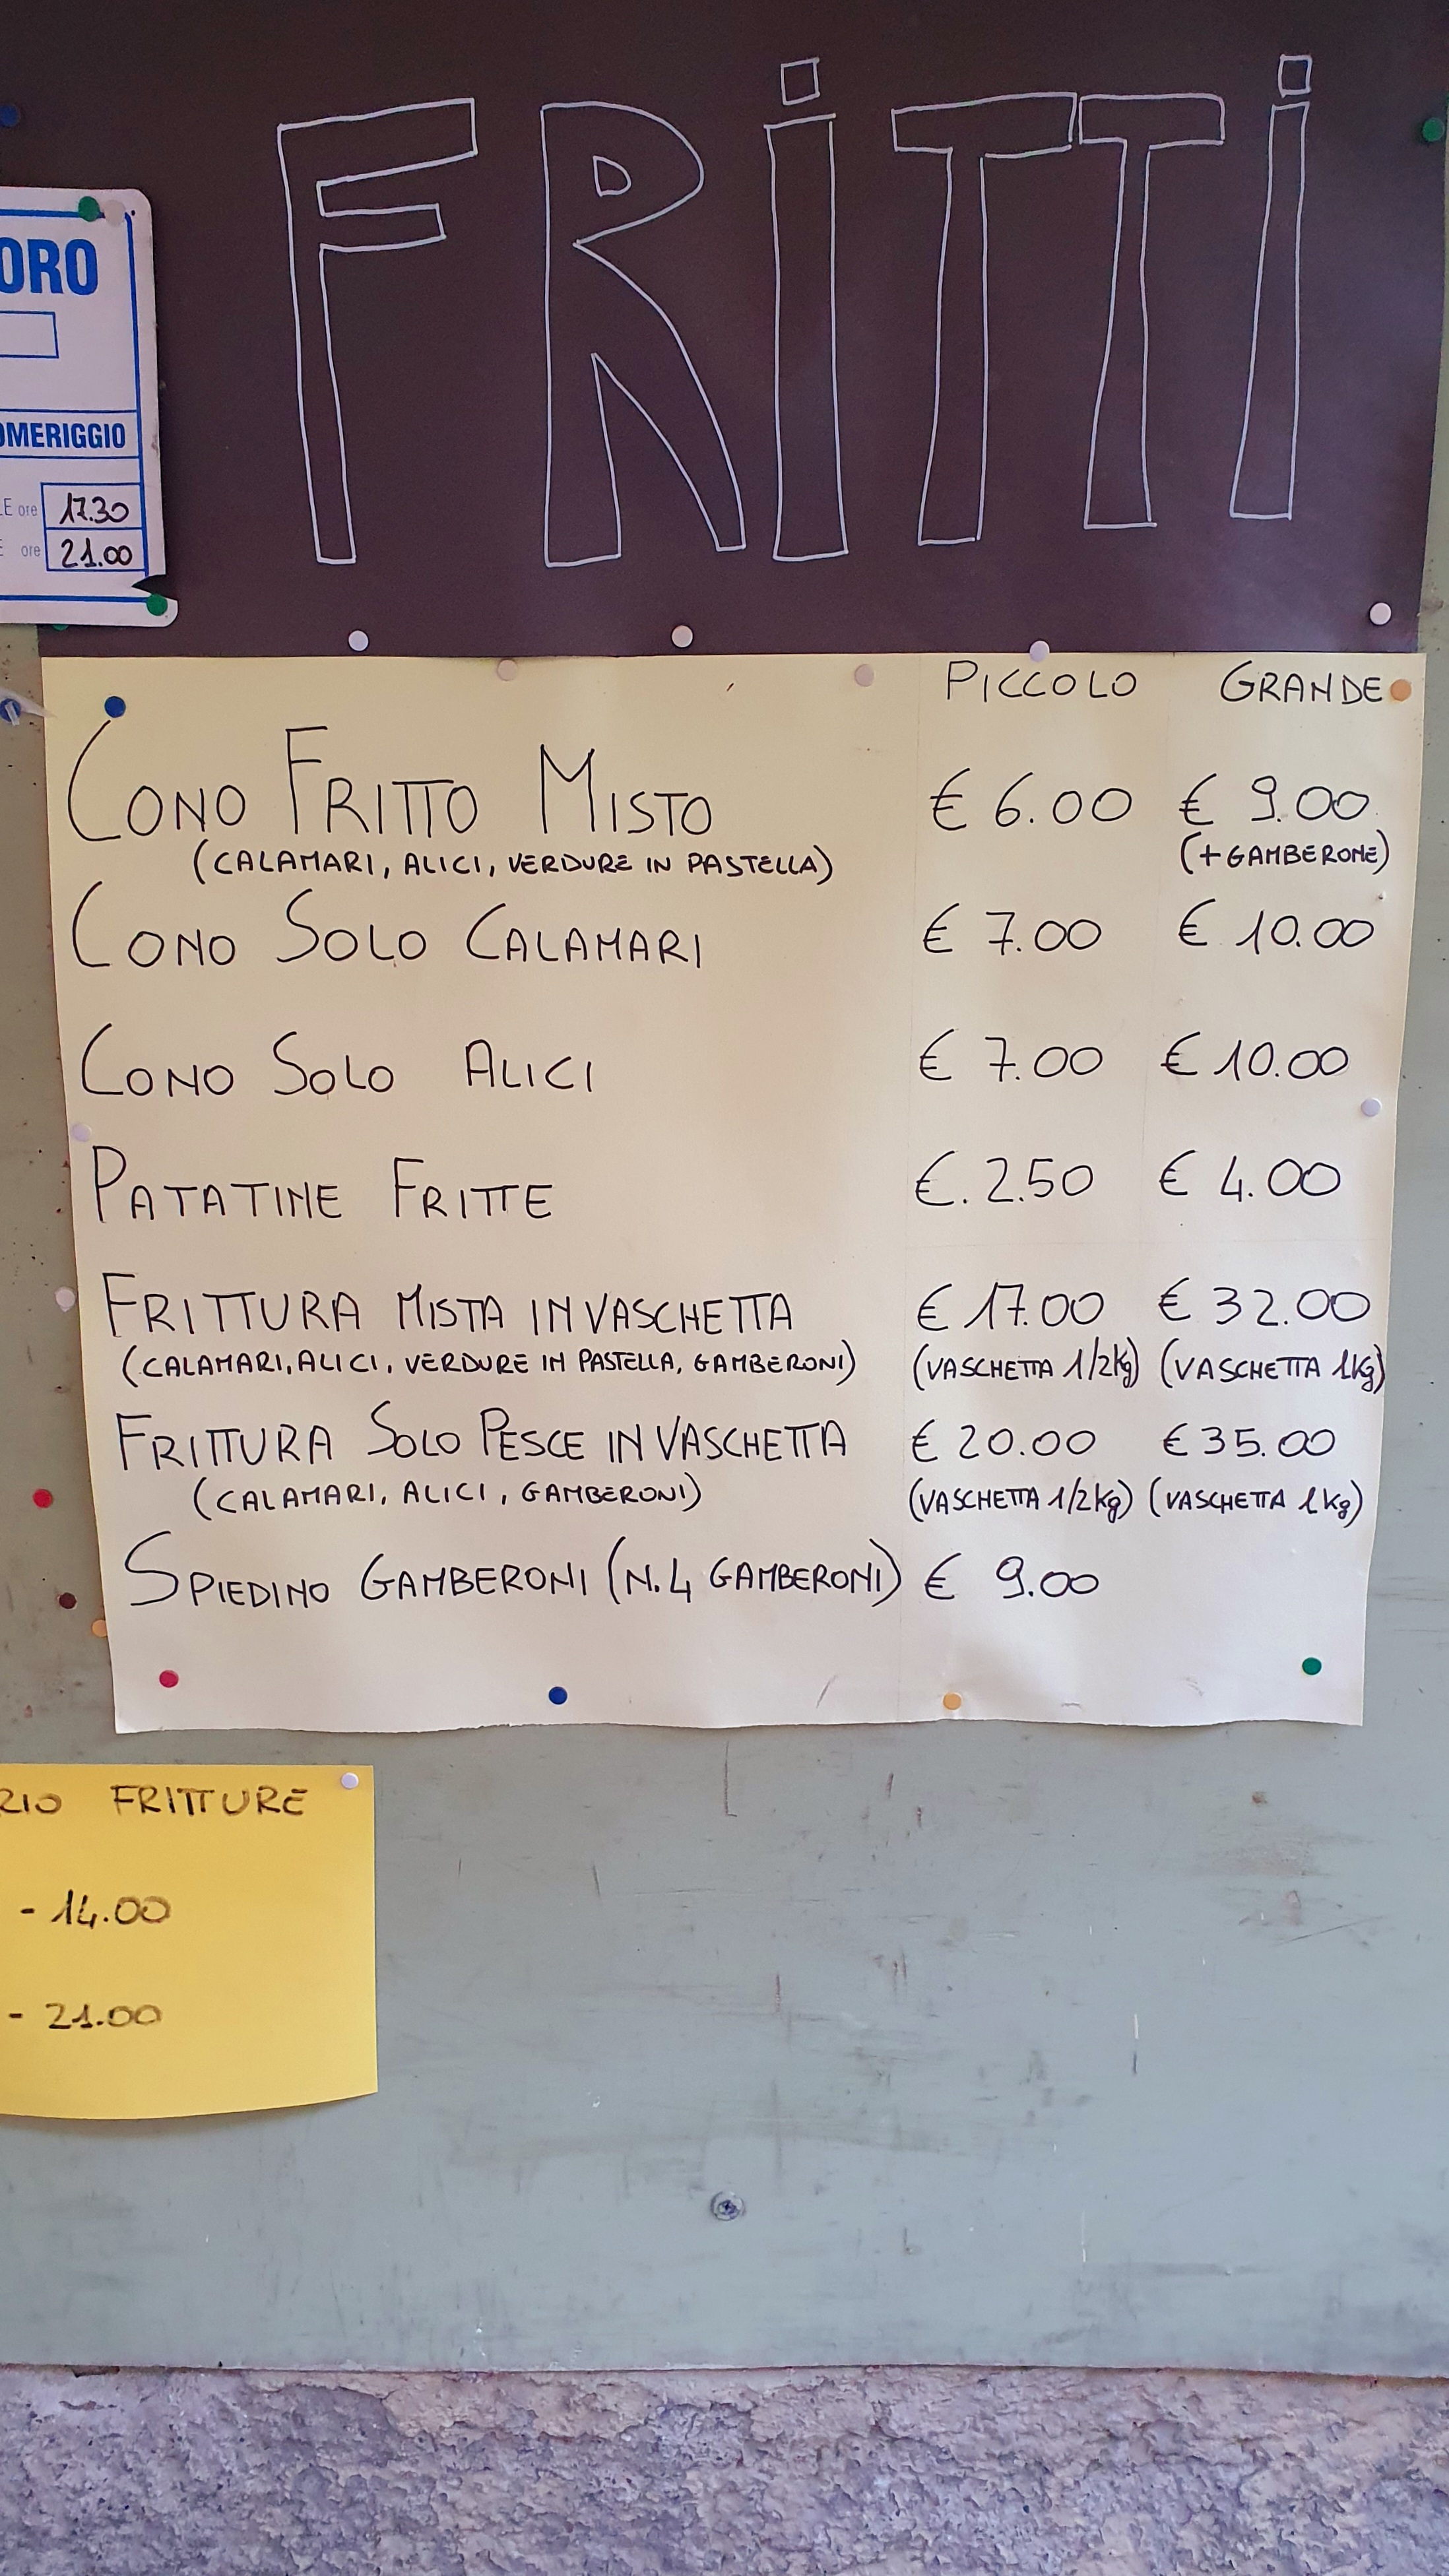 FRiTTi
ORO
OMERIGGIO
LE ore 17.30
E ore 21.00
PICCOLO GRANDE
CONO FRITTO MISTO € 6.00 € 9.00
(CALAMARI, ALICI, VERDURE IN PASTELLA) (+GAMBERONE)
CONO SOLO CALAMARI € 7.00 € 10.00
CONO SOLO ALICI € 7.00 € 10.00
PATATINE FRITTE €. 2.50 € 4.00
FRITTURA MISTA IN VASCHETTA € 17.00 € 32.00
(CALAMARI, ALICI, VERDURE IN PASTELLA, GAMBERONI) (VASCHETTA 1/2kg) (VASCHETTA 1kg)
FRITTURA SOLO PESCE IN VASCHETTA € 20.00 € 35.00
(CALAMARI, ALICI, GAMBERONI) (VASCHETTA 1/2kg) (VASCHETTA 1kg)
SPIEDINO GAMBERONI (N.4 GAMBERONI) € 9.00
RIO FRITTURE
- 14.00
- 21.00